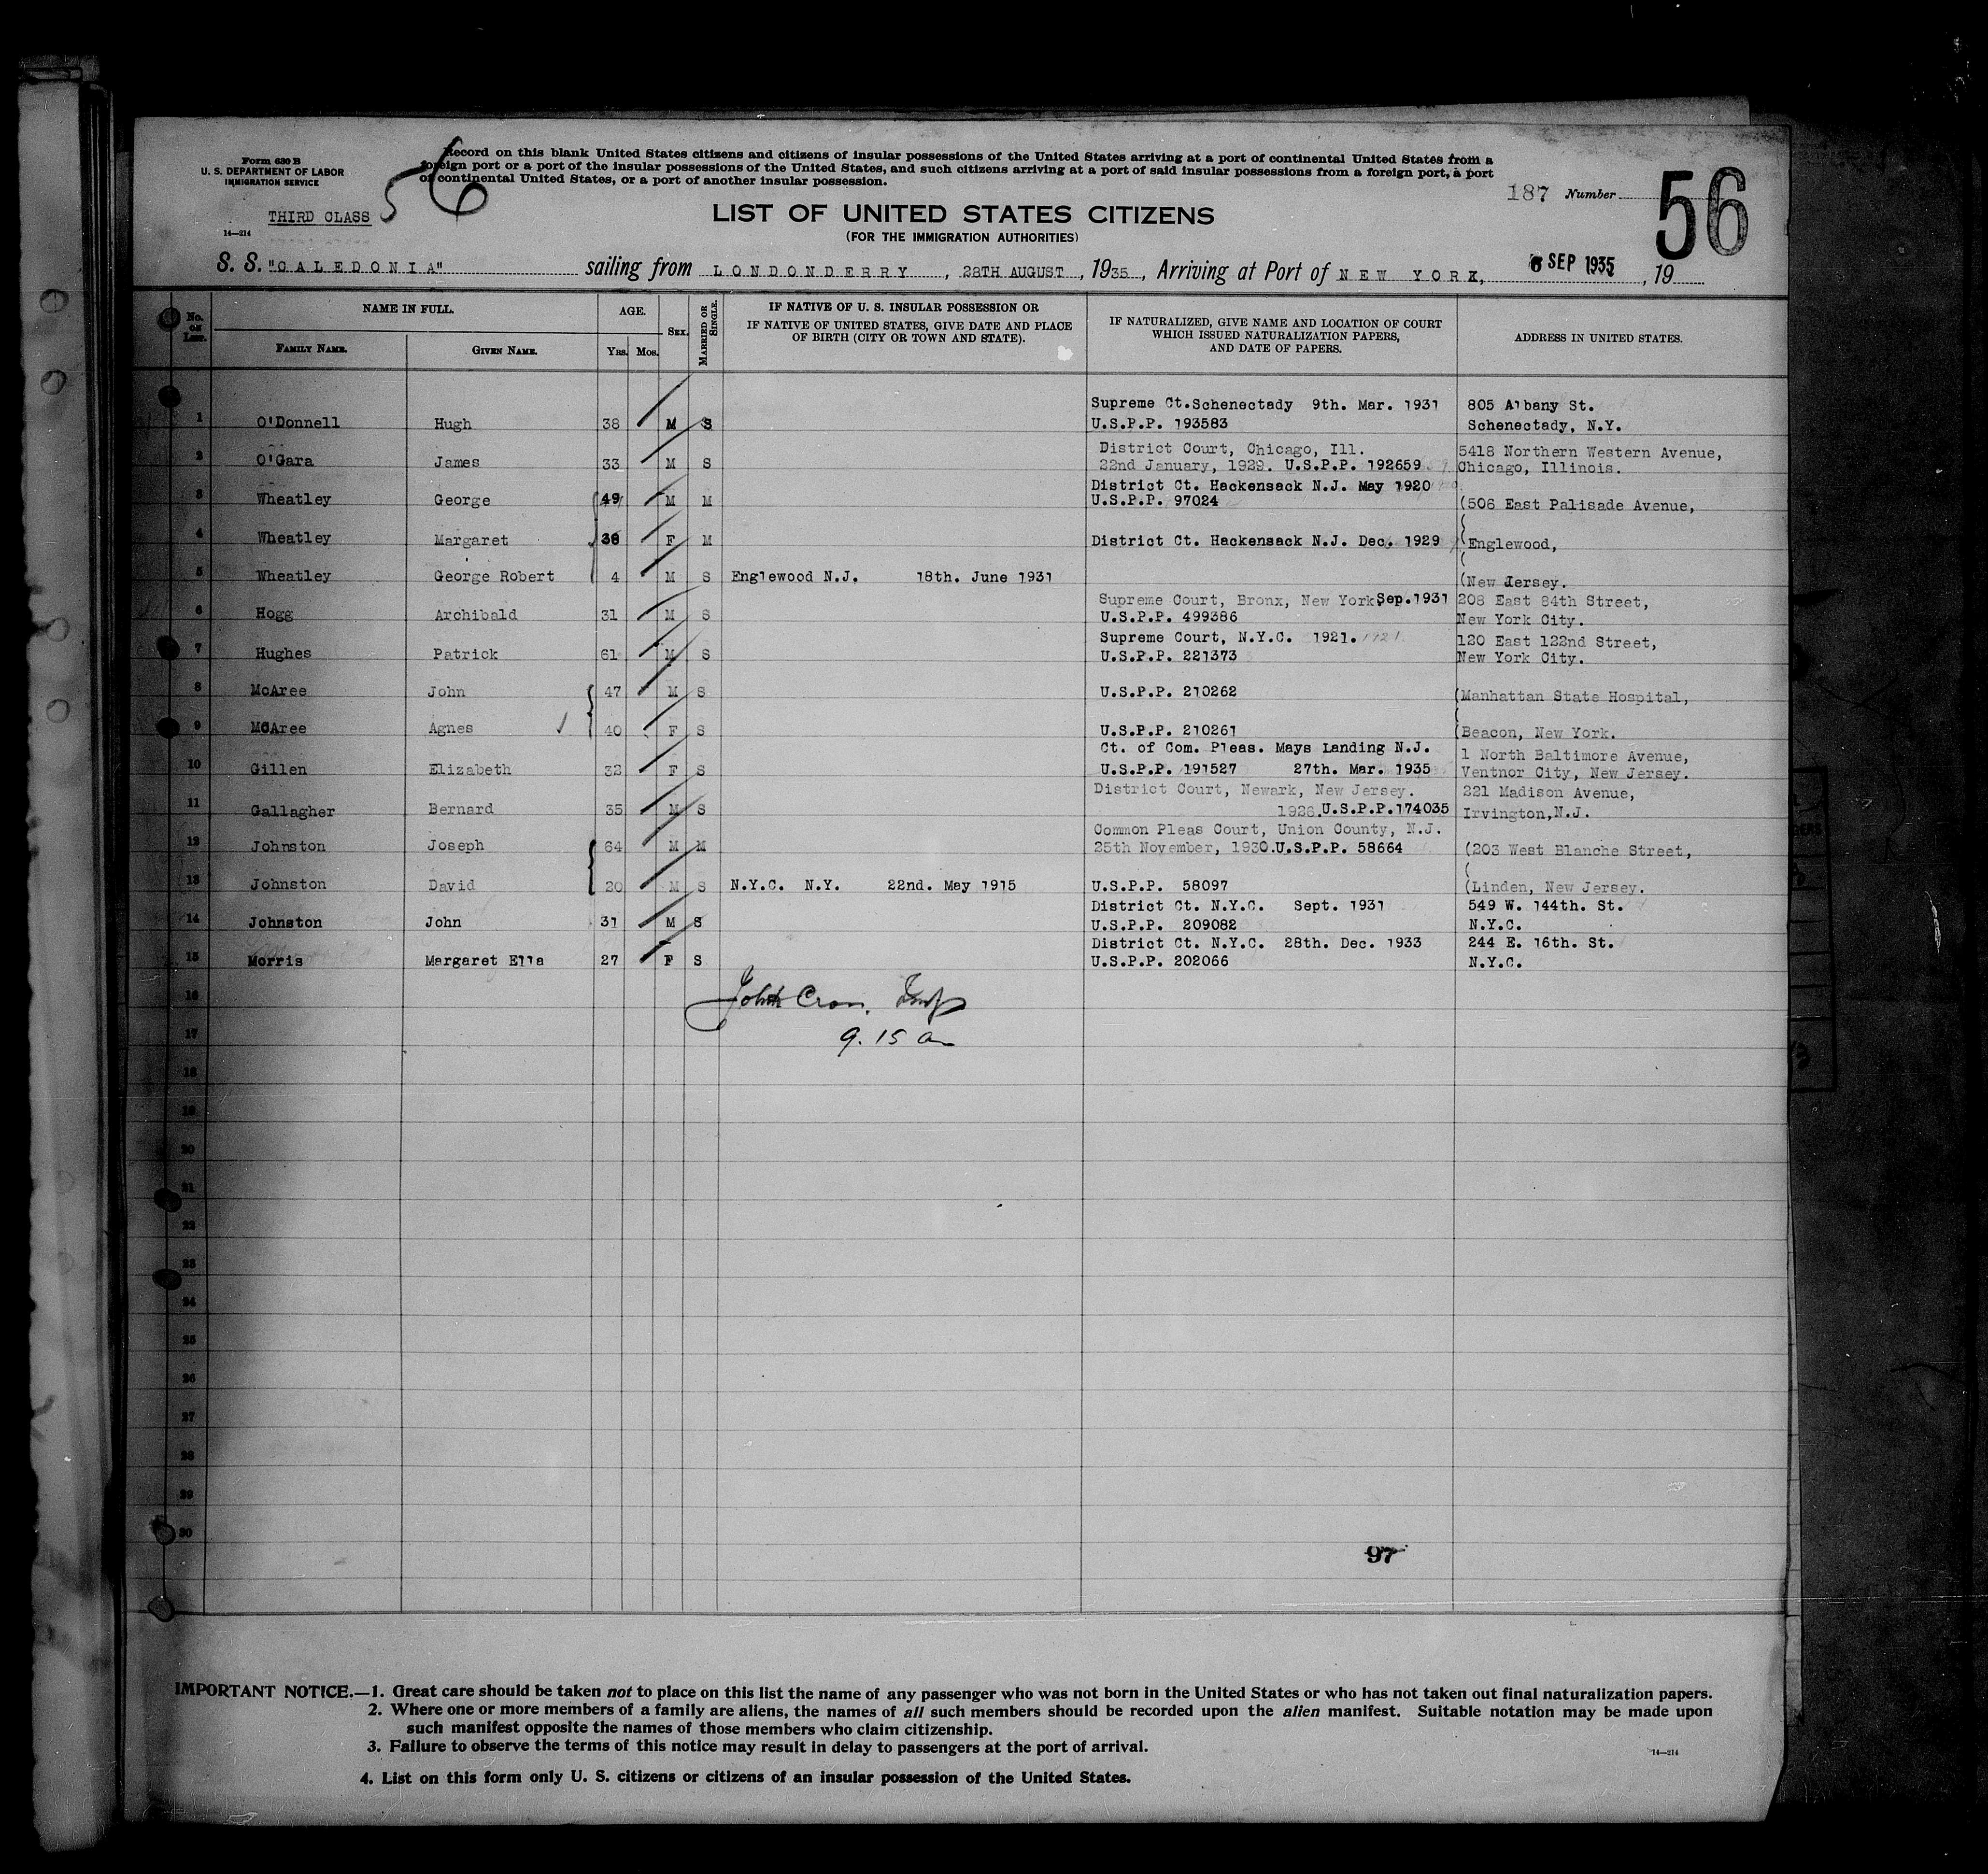 Form 630 B
U. S. DEPARTMENT OF LABOR
IMMIGRATION SERVICE
THIRD CLASS
14—214
56
Record on this blank United States citizens and citizens of insular possessions of the United States arriving at a port of continental United States from a
foreign port or a port of the insular possessions of the United States, and such citizens arriving at a port of said insular possessions from a foreign port, a port
of continental United States, or a port of another insular possession.
187 Number 56
LIST OF UNITED STATES CITIZENS
(FOR THE IMMIGRATION AUTHORITIES)
S. S. "CALEDONIA" sailing from LONDONDERRY, 28TH AUGUST, 1935, Arriving at Port of NEW YORK, 6 SEP 1935, 19
No. on List. NAME IN FULL. AGE. SEX. MARRIED OR SINGLE. IF NATIVE OF U. S. INSULAR POSSESSION OR
IF NATIVE OF UNITED STATES, GIVE DATE AND PLACE
OF BIRTH (CITY OR TOWN AND STATE).
IF NATURALIZED, GIVE NAME AND LOCATION OF COURT
WHICH ISSUED NATURALIZATION PAPERS,
AND DATE OF PAPERS.
ADDRESS IN UNITED STATES.
FAMILY NAME. GIVEN NAME. YRS. MOS.
Supreme Ct.Schenectady 9th. Mar. 1931 805 Albany St.
1 O'Donnell Hugh 38 M S U.S.P.P. 193583 Schenectady, N.Y.
District Court, Chicago, Ill. 5418 Northern Western Avenue,
2 O'Gara James 33 M S 22nd January, 1929. U.S.P.P. 192659 Chicago, Illinois.
District Ct. Hackensack N.J. May 1920
3 Wheatley George (49 M M U.S.P.P. 97024 (506 East Palisade Avenue,
4 Wheatley Margaret 38 F M District Ct. Hackensack N.J. Dec. 1929 (Englewood,
5 Wheatley George Robert 4 M S Englewood N.J. 18th. June 1931 (New Jersey.
Supreme Court, Bronx, New York Sep.1931 208 East 84th Street,
6 Hogg Archibald 31 M S U.S.P.P. 499386 New York City.
Supreme Court, N.Y.C. 1921. 1921 120 East 122nd Street,
7 Hughes Patrick 61 M S U.S.P.P. 221373 New York City.
8 McAree John 47 M S U.S.P.P. 210262 (Manhattan State Hospital,
9 McAree Agnes 40 F S U.S.P.P. 210261 (Beacon, New York.
Ct. of Com. Pleas. Mays Landing N.J. 1 North Baltimore Avenue,
10 Gillen Elizabeth 32 F S U.S.P.P. 191527 27th. Mar. 1935 Ventnor City, New Jersey.
District Court, Newark, New Jersey. 221 Madison Avenue,
11 Gallagher Bernard 35 M S 1926.U.S.P.P.174035 Irvington,N.J.
Common Pleas Court, Union County, N.J.
12 Johnston Joseph 64 M M 25th November, 1930.U.S.P.P. 58664 (203 West Blanche Street,
13 Johnston David 20 M S N.Y.C. N.Y. 22nd. May 1915 U.S.P.P. 58097 (Linden, New Jersey.
District Ct. N.Y.C. Sept. 1931 549 W. 144th. St.
14 Johnston John 31 M S U.S.P.P. 209082 N.Y.C.
District Ct. N.Y.C. 28th. Dec. 1933 244 E. 16th. St.
15 Morris Margaret Ella 27 F S U.S.P.P. 202066 N.Y.C.
16 John Cron. Insp
17 9.15 a
18
19
20
21
22
23
24
25
26
27
28
29
30
97
IMPORTANT NOTICE.—1. Great care should be taken not to place on this list the name of any passenger who was not born in the United States or who has not taken out final naturalization papers.
2. Where one or more members of a family are aliens, the names of all such members should be recorded upon the alien manifest. Suitable notation may be made upon
such manifest opposite the names of those members who claim citizenship.
3. Failure to observe the terms of this notice may result in delay to passengers at the port of arrival.
14—214
4. List on this form only U. S. citizens or citizens of an insular possession of the United States.